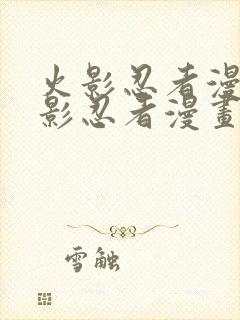 火影忍者漫
影忍者漫畫
雪触